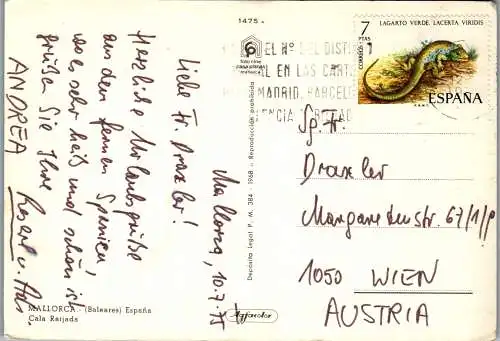 1475
foto cine
mallorca
Mallorca, 10.7.75
Liebe Fr. Draxler!
Herzliche Urlaubsgrüße
aus dem fernen Spanien,
wo es sehr heiß und schön ist
grüßen Sie Ihre
ANDREA
MALLORCA.- (Baleares) España
Cala Ratjada
Depósito Legal P. M. 384 - 1968 - Reproducción prohibida
Agfacolor
EL Nº DEL DISTRI
EN LAS CART
MADRID, BARCEL
LAGARTO VERDE. LACERTA VIRIDIS
7
PTAS
CORREOS
ESPAÑA
Sp. Fr.
Draxler
Margaretenstr. 67/1/
1050 WIEN
AUSTRIA